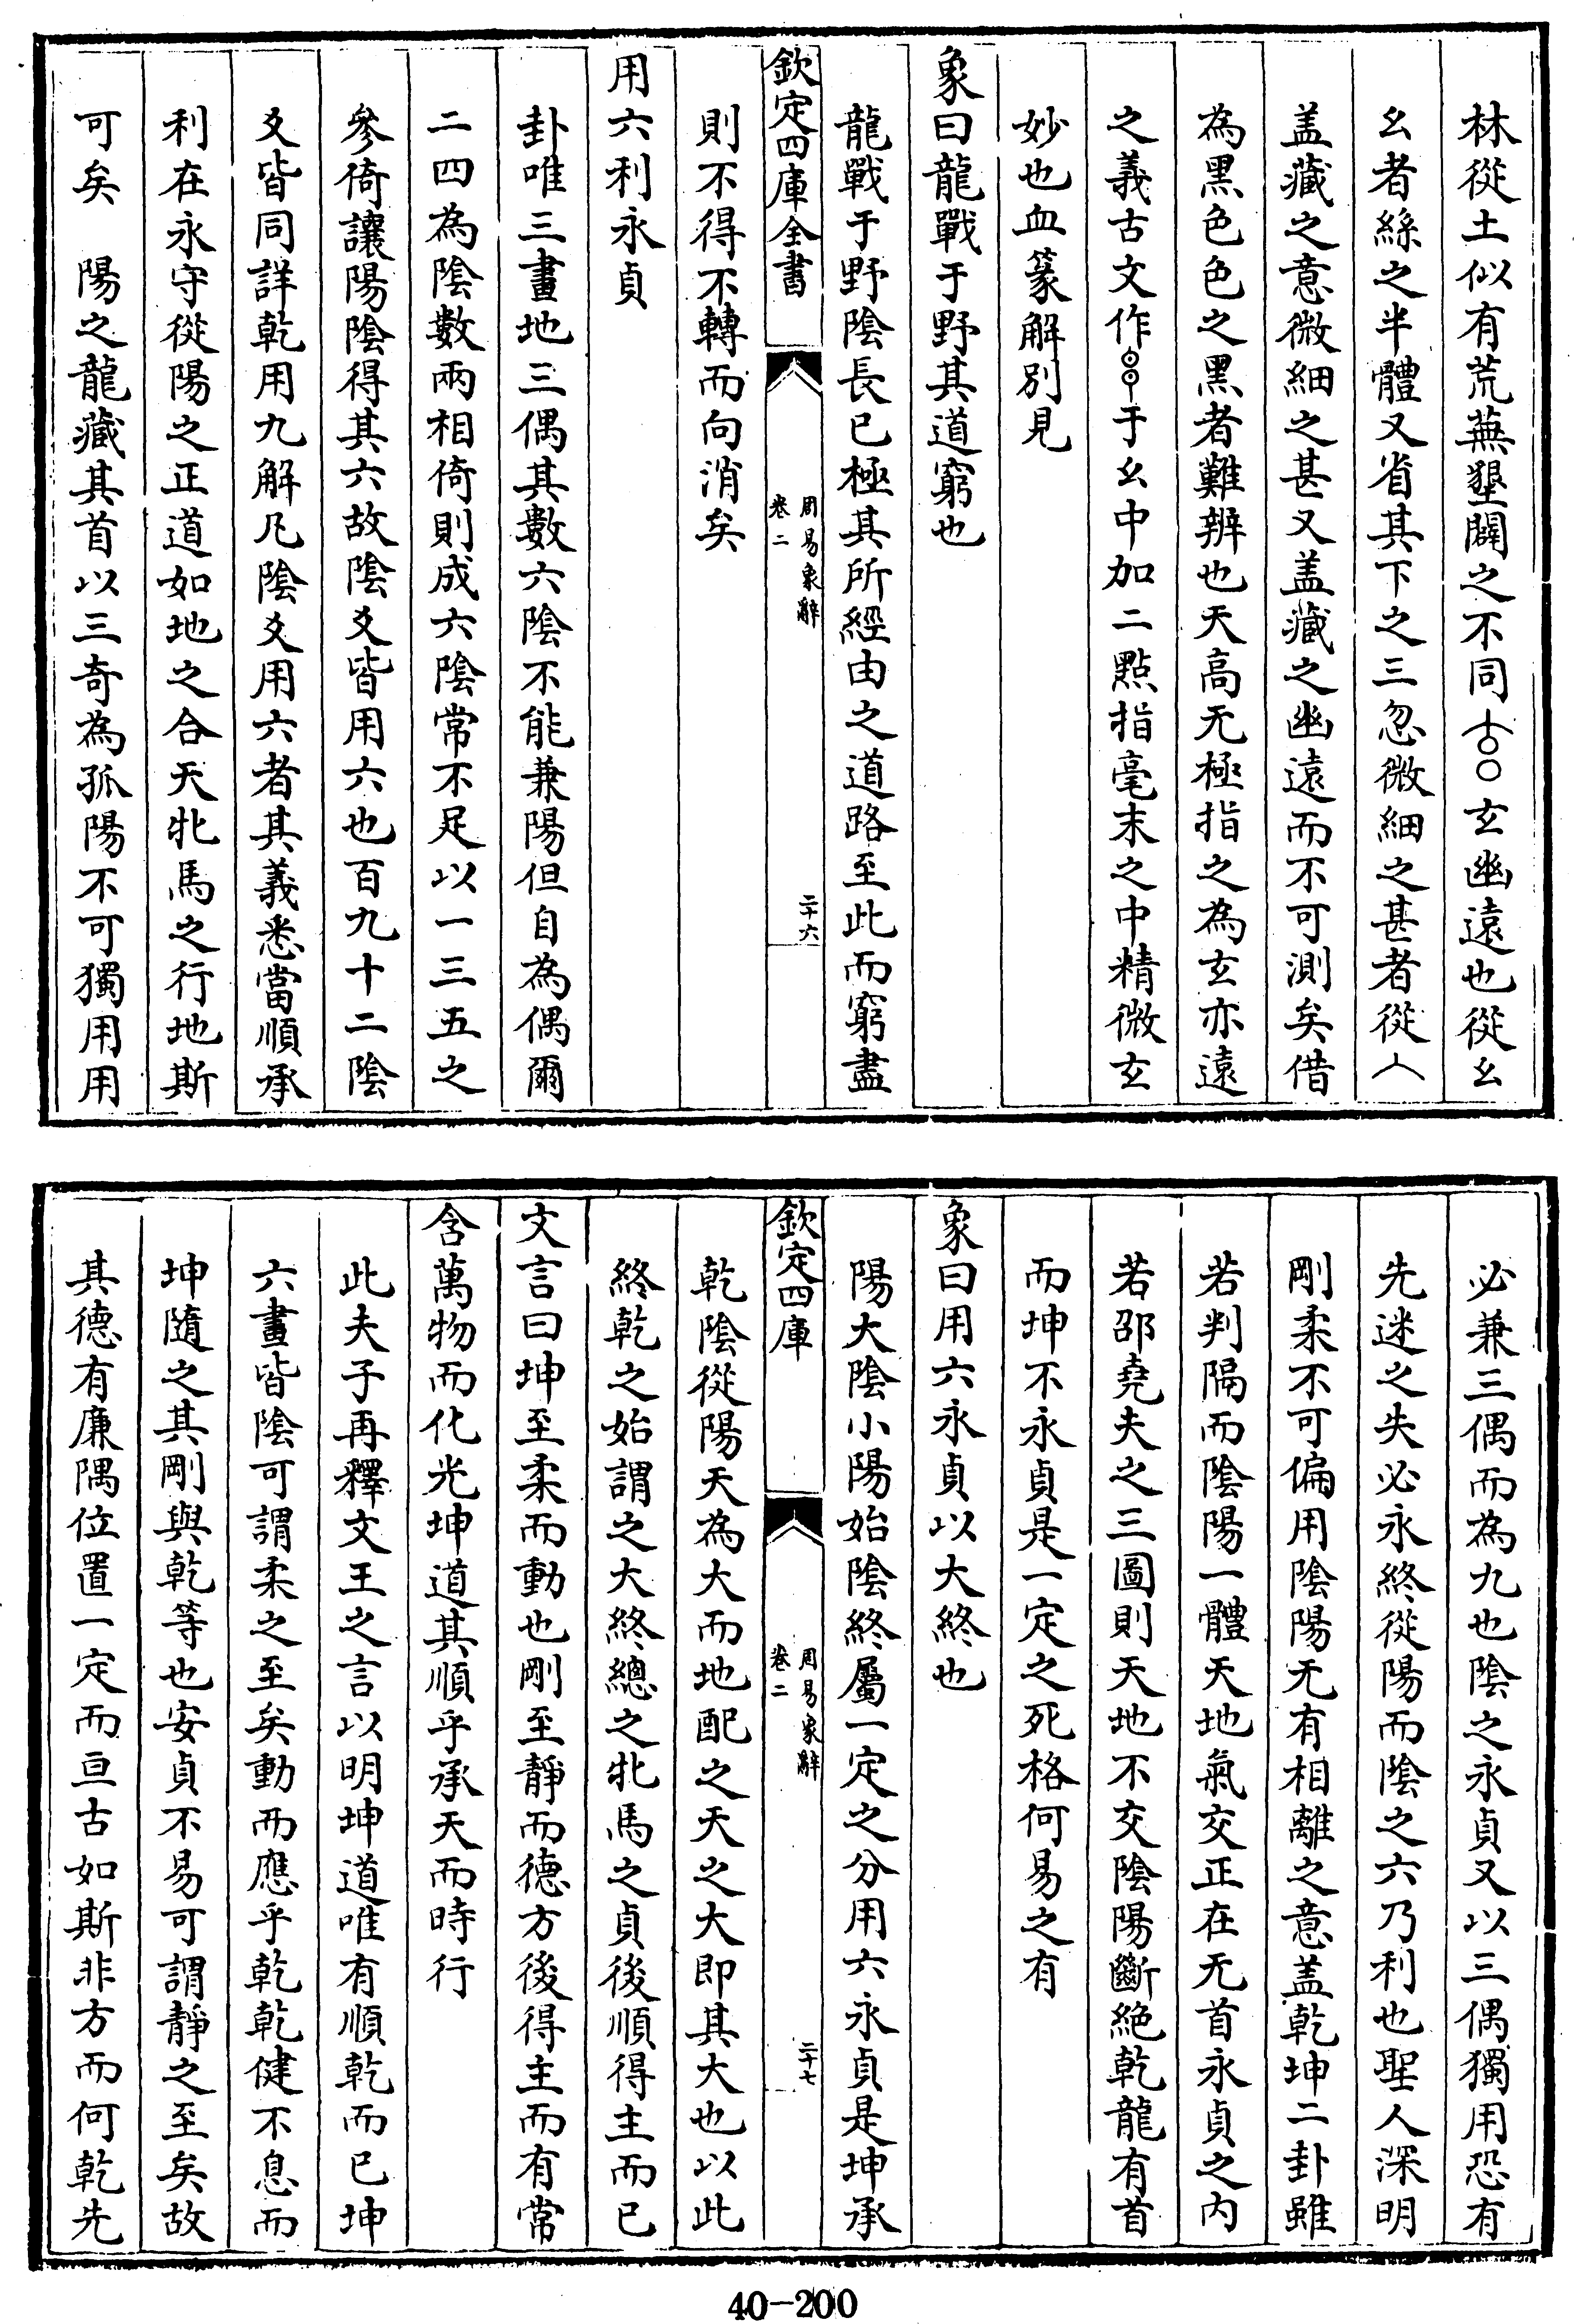 林從土似有荒蕪墾闢之不同玄幽遠也從幺
幺者絲之半體又省其下之三忽微細之甚者從𠆢
盖藏之意微細之甚又盖藏之幽遠而不可測矣借
為黑色色之黑者難辨也天高无極指之為玄亦遠
之義古文作于幺中加二點指毫末之中精微玄
妙也血篆解別見
象曰龍戰于野其道窮也
龍戰于野陰長已極其所經由之道路至此而窮盡
欽定四庫全書
周易象辭
卷二
二十六
則不得不轉而向消矣
用六利永貞
卦唯三畫地三偶其數六陰不能兼陽但自為偶爾
二四為陰數兩相倚則成六陰常不足以一三五之
參倚讓陽陰得其六故陰爻皆用六也百九十二陰
爻皆同詳乾用九解凡陰爻用六者其義悉當順承
利在永守從陽之正道如地之合天牝馬之行地斯
可矣　陽之龍藏其首以三奇為孤陽不可獨用用
必兼三偶而為九也陰之永貞又以三偶獨用恐有
先迷之失必永終從陽而陰之六乃利也聖人深明
剛柔不可偏用陰陽无有相離之意盖乾坤二卦雖
若判隔而陰陽一體天地氣交正在无首永貞之内
若邵堯夫之三圖則天地不交陰陽斷絶乾龍有首
而坤不永貞是一定之死格何易之有
象曰用六永貞以大終也
陽大陰小陽始陰終屬一定之分用六永貞是坤承
欽定四庫
周易象辭
卷二
二十七
乾陰從陽天為大而地配之天之大即其大也以此
終乾之始謂之大終總之牝馬之貞後順得主而已
文言曰坤至柔而動也剛至靜而德方後得主而有常
含萬物而化光坤道其順乎承天而時行
此夫子再釋文王之言以明坤道唯有順乾而已坤
六畫皆陰可謂柔之至矣動而應乎乾乾健不息而
坤隨之其剛與乾等也安貞不易可謂靜之至矣故
其德有廉隅位置一定而亘古如斯非方而何乾先
40-200